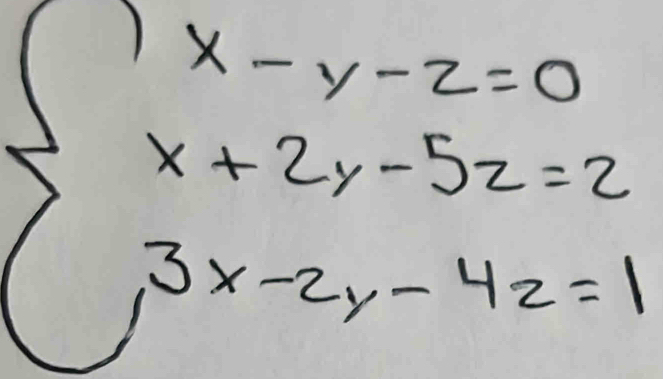 x - y - z = 0
x + 2y - 5z = 2
3x - 2y - 4z = 1